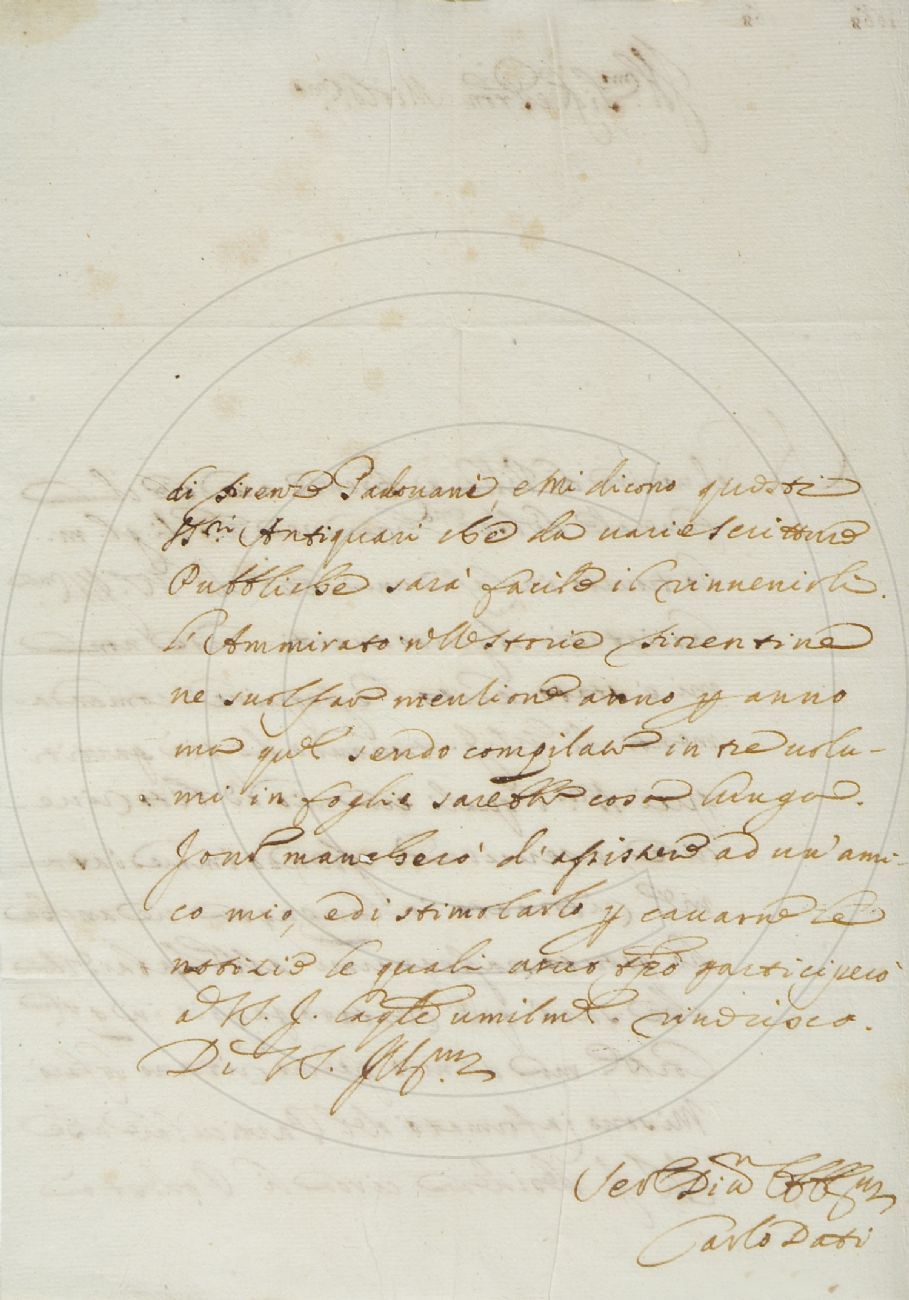 di Firenze Padouani, e Mi dicono questi
SS.ri Antiquari che da varie scritture
Pubbliche sarà facile il rinuenirli.
L'Ammirato nelle storie fiorentine
ne suol far menzione anno p anno
ma quel sendo compilate in tre uolu-
mi in foglio sarebbe cosa lunga.
Io nō mancherò d'assistere ad un' ami-
co mio, e di stimolarlo p cauarne le
notizie le quali a suo tpō parteciperò
a V.S. I. la qle umilmte. riuerisco.
Di V.S. Ill.ma
Ser. Diu.
Carlo Dati